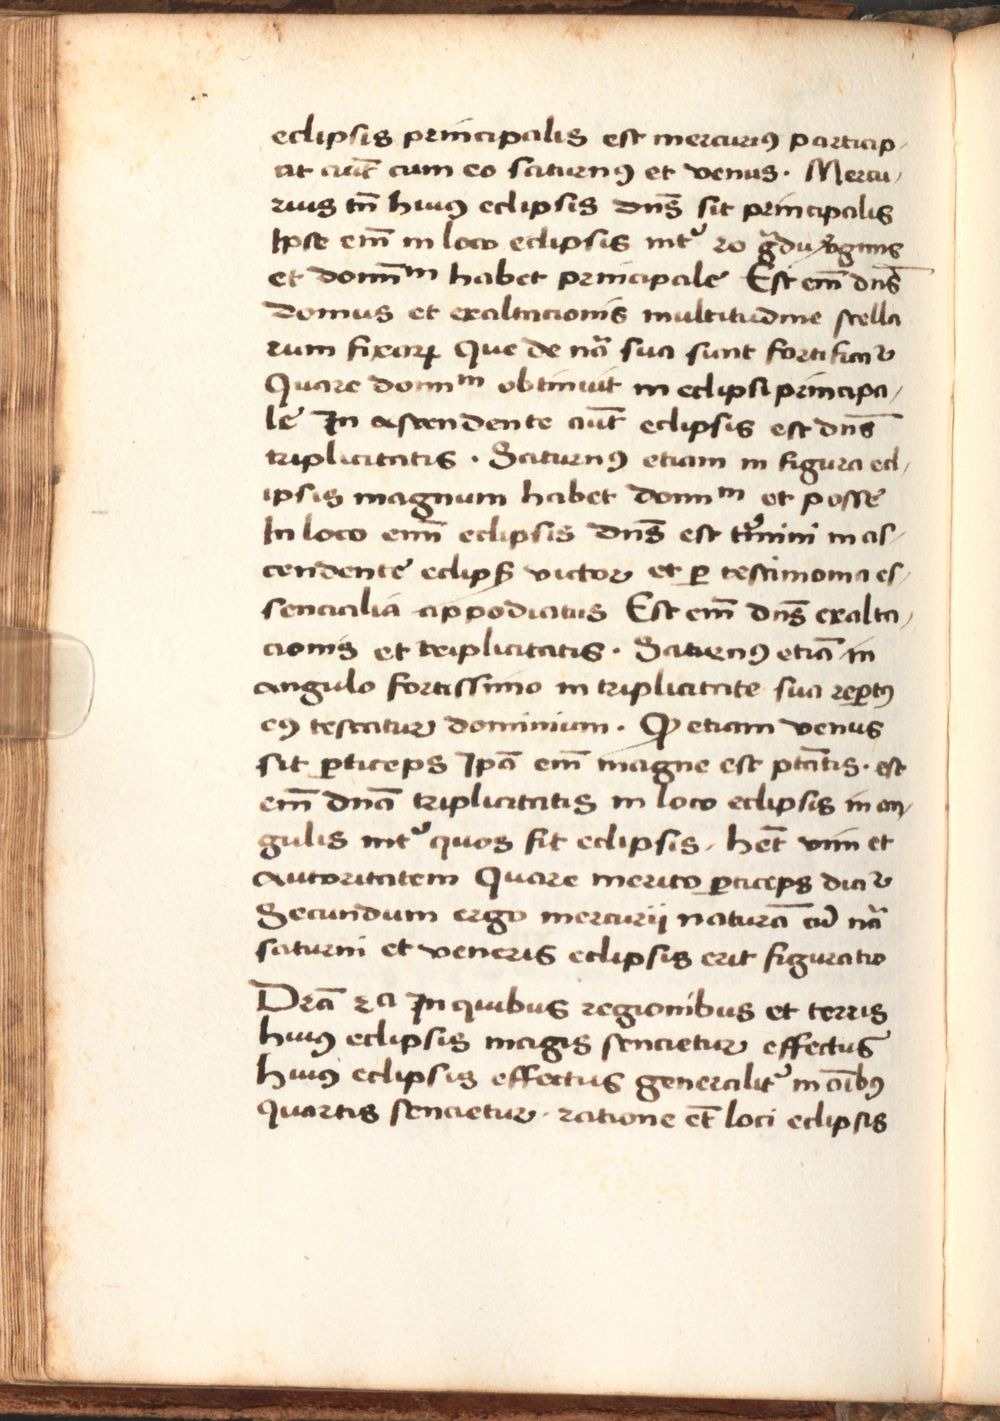 eclipsis principalis est mercuriꝰ particip,
at aut̄ cum eo saturnꝰ et venus. Mercu,
rius tn̄ huiꝰ eclipsis dn̄s sit principalis
Ipse em̄ in loco eclipsis intᵉʳ 20 gͣdū vͥginis
et domīᵐ habet principale Est em̄ dn̄s
domus et exaltacionis multitudine stella
rum fixaꝝ Que de nāͣ sua sunt fortificatᵘʳ
Quare domīᵐ obtinuit in eclipsi principa,
le In ascendente aut̄ eclipsis est dn̄s
triplicitatis . Saturnꝰ etiam in figura ecl,
ipsis magnum habet domīᵐ et posse
In loco enī eclipsis dn̄s est tᵉʳmini in as,
cendente eclipß victor et ꝑ testimonia es,
sencialia appodiatus Est em̄ dn̄s exalta,
cionis et triplicitatis . Saturnꝰ etiā in
angulo fortissimo in triplicitate sua reꝑtꝰ
eꝰ testatur dominium . Qꝫ etiam venus
sit ꝑticeps Ip̄a em̄ magne est ptāt̄is . est
em̄ dn̄a triplicitatis in loco eclipsis in an,
gulis intᵉʳ quos fit eclipsis . hēt vim et
autoritatem Quare merito ꝑticeps dicitᵘʳ
Secundum ergo mercurii naturā cū nāͣ
saturni et veneris eclipsis erit figuratio
Drā̄ 2ᵃ In quibus regionibus et terris
huiꝰ eclipsis magis sencietur effectus
huiꝰ eclipsis effectus generalitᵉʳ in oībꝰ
quartis sencietur . ratione et̄ loci eclipsis